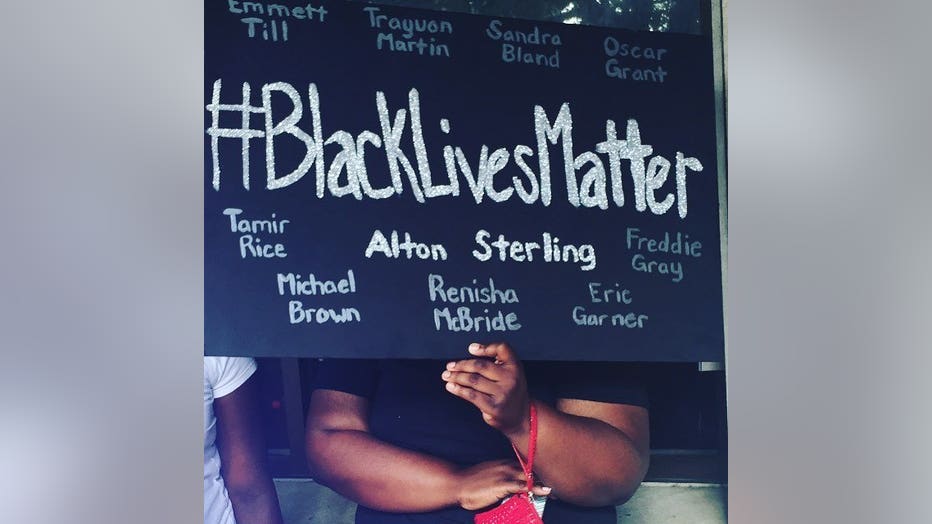 Emmett
Till
Trayvon
Martin
Sandra
Bland
Oscar
Grant
#BlackLivesMatter
Tamir
Rice
Alton Sterling
Freddie
Gray
Michael
Brown
Renisha
McBride
Eric
Garner